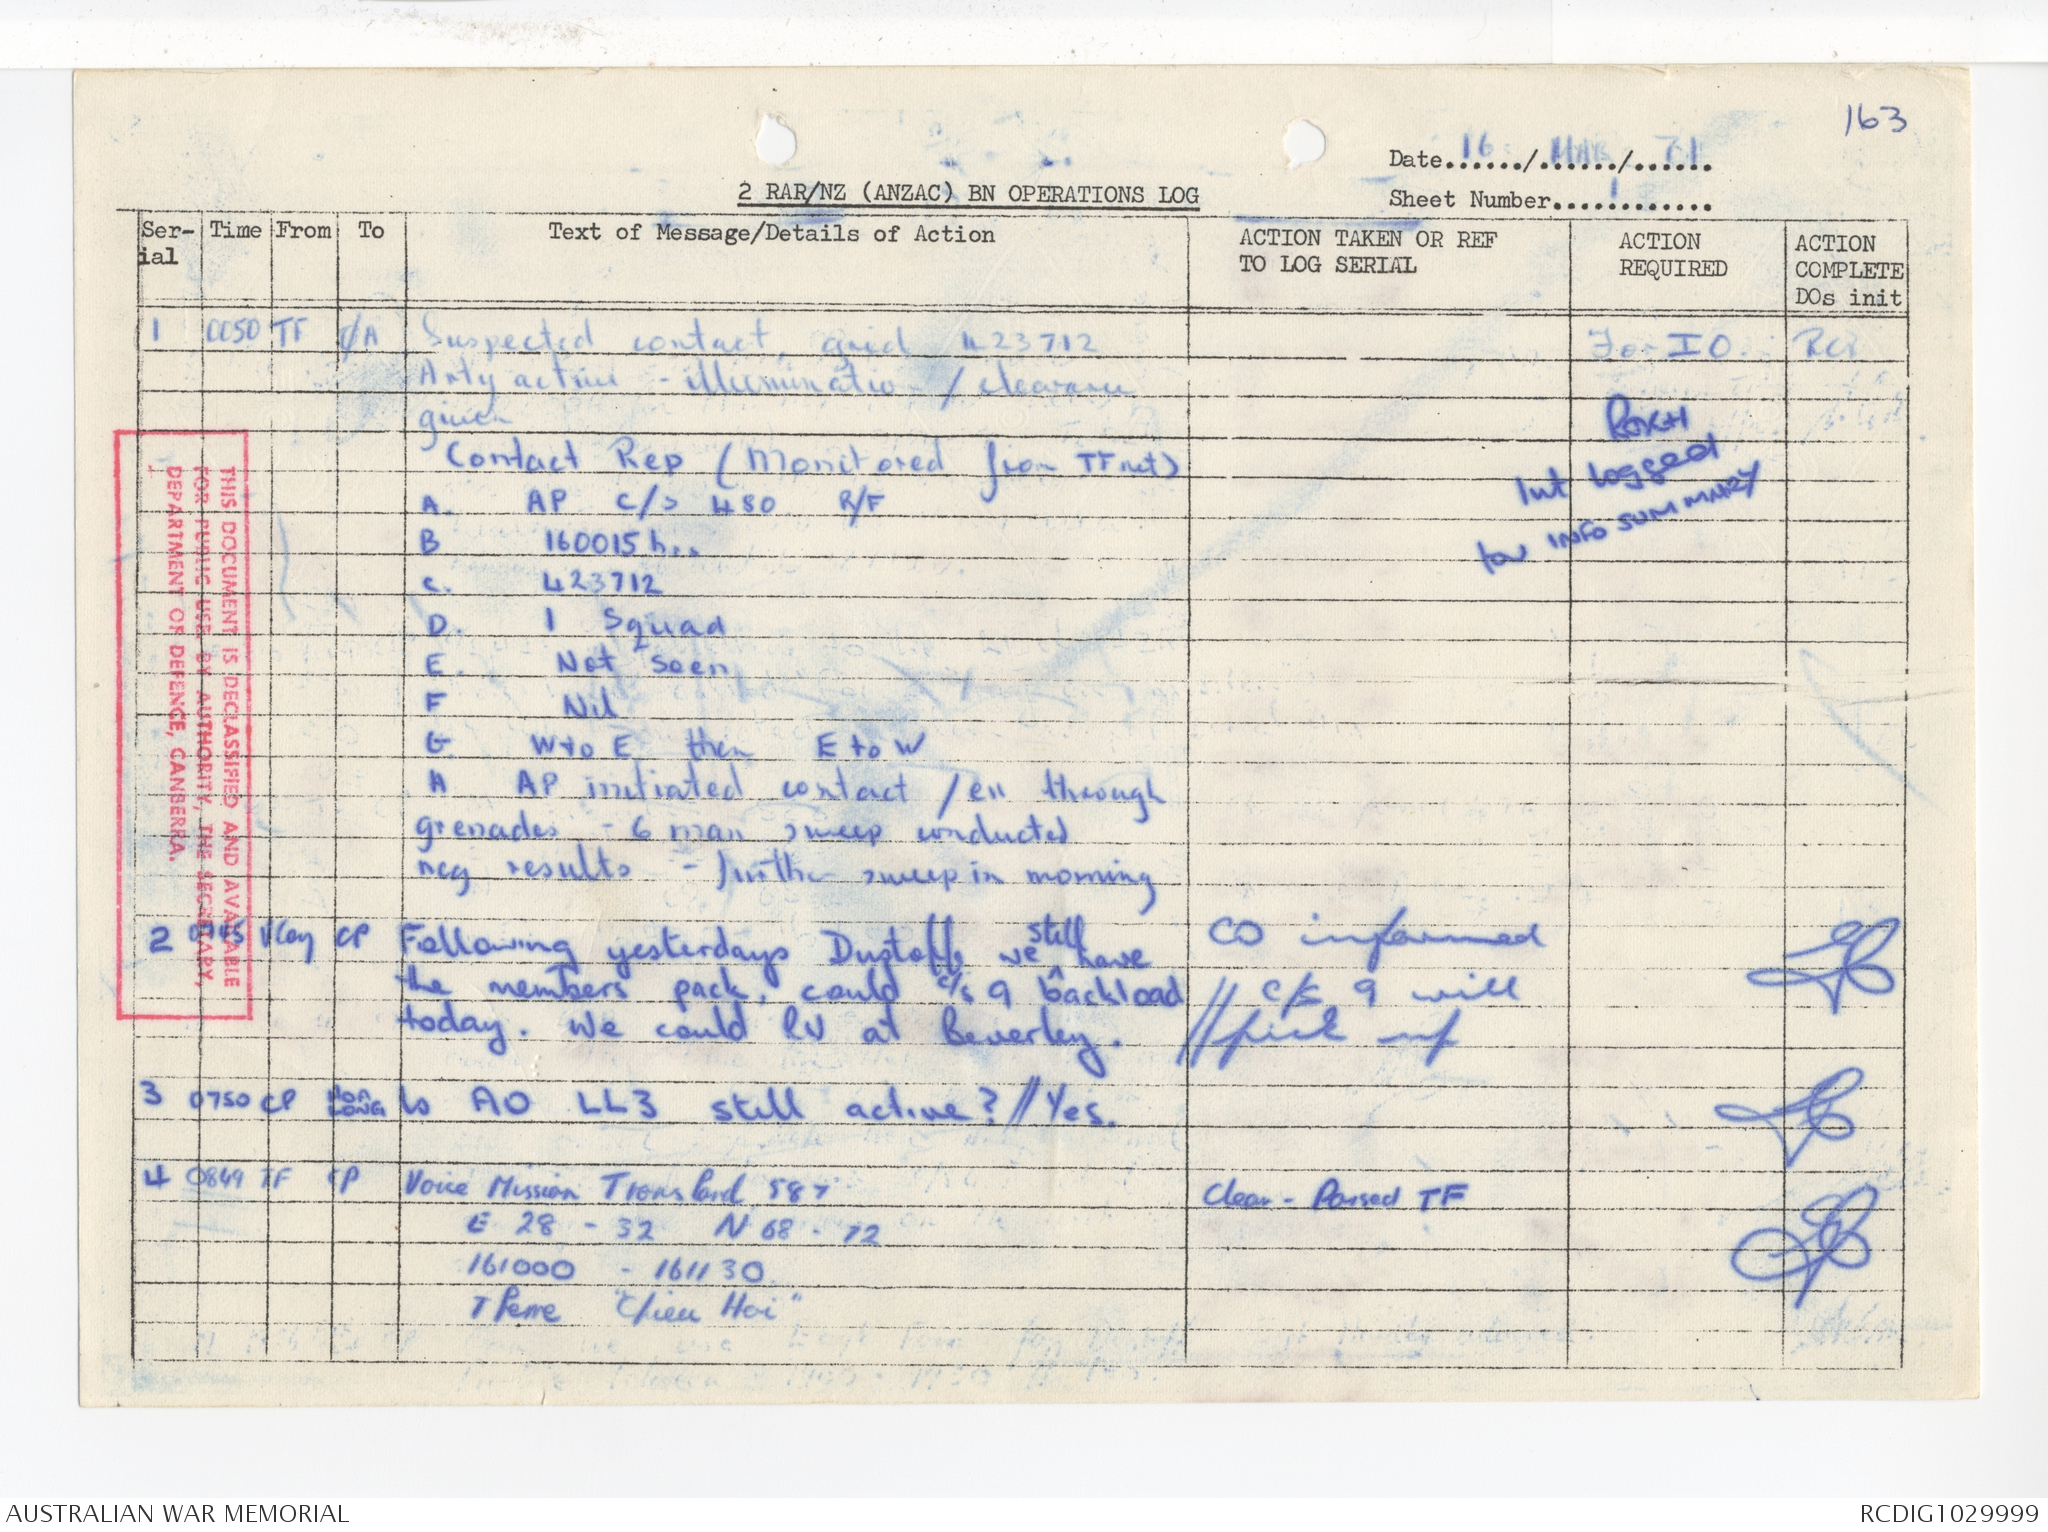 163
Date 16 / MAR / 71
2 RAR/NZ (ANZAC) BN OPERATIONS LOG
Sheet Number 1
Ser-ial Time From To Text of Message/Details of Action ACTION TAKEN OR REF TO LOG SERIAL ACTION REQUIRED ACTION COMPLETE DOs init
1 0050 TF Suspected contact, grid 423712 For IO.
Arty active - illumination / clearance
given
Contact Rep (Monitored from TF net)
Int logged
for INFO SUMMARY
A. AP C/S 480 R/F
B 160015h
C. 423712
D. 1 Squad
E. Not seen
F Nil
G. W to E then E to W
A AP initiated contact / en through
grenades - 6 man sweep conducted
neg results - further sweep in morning
2 0745 V Coy CP Following yesterdays Dustoff, we still have CO informed
the members pack, could c/s 9 backload // c/s 9 will
today. We could RV at Beverley. // pick up
3 0750 CP HOA LONG Is AO LL3 still active? // Yes.
4 0849 TF CP Voice Mission 587 Clear - Passed TF
E 28 - 32 N 68 - 72
161000 - 161130
Theme "Chieu Hoi"
THIS DOCUMENT IS DECLASSIFIED AND AVAILABLE
FOR PUBLIC USE, BY AUTHORITY, THE SECRETARY,
DEPARTMENT OF DEFENCE, CANBERRA.
AUSTRALIAN WAR MEMORIAL RCDIG1029999